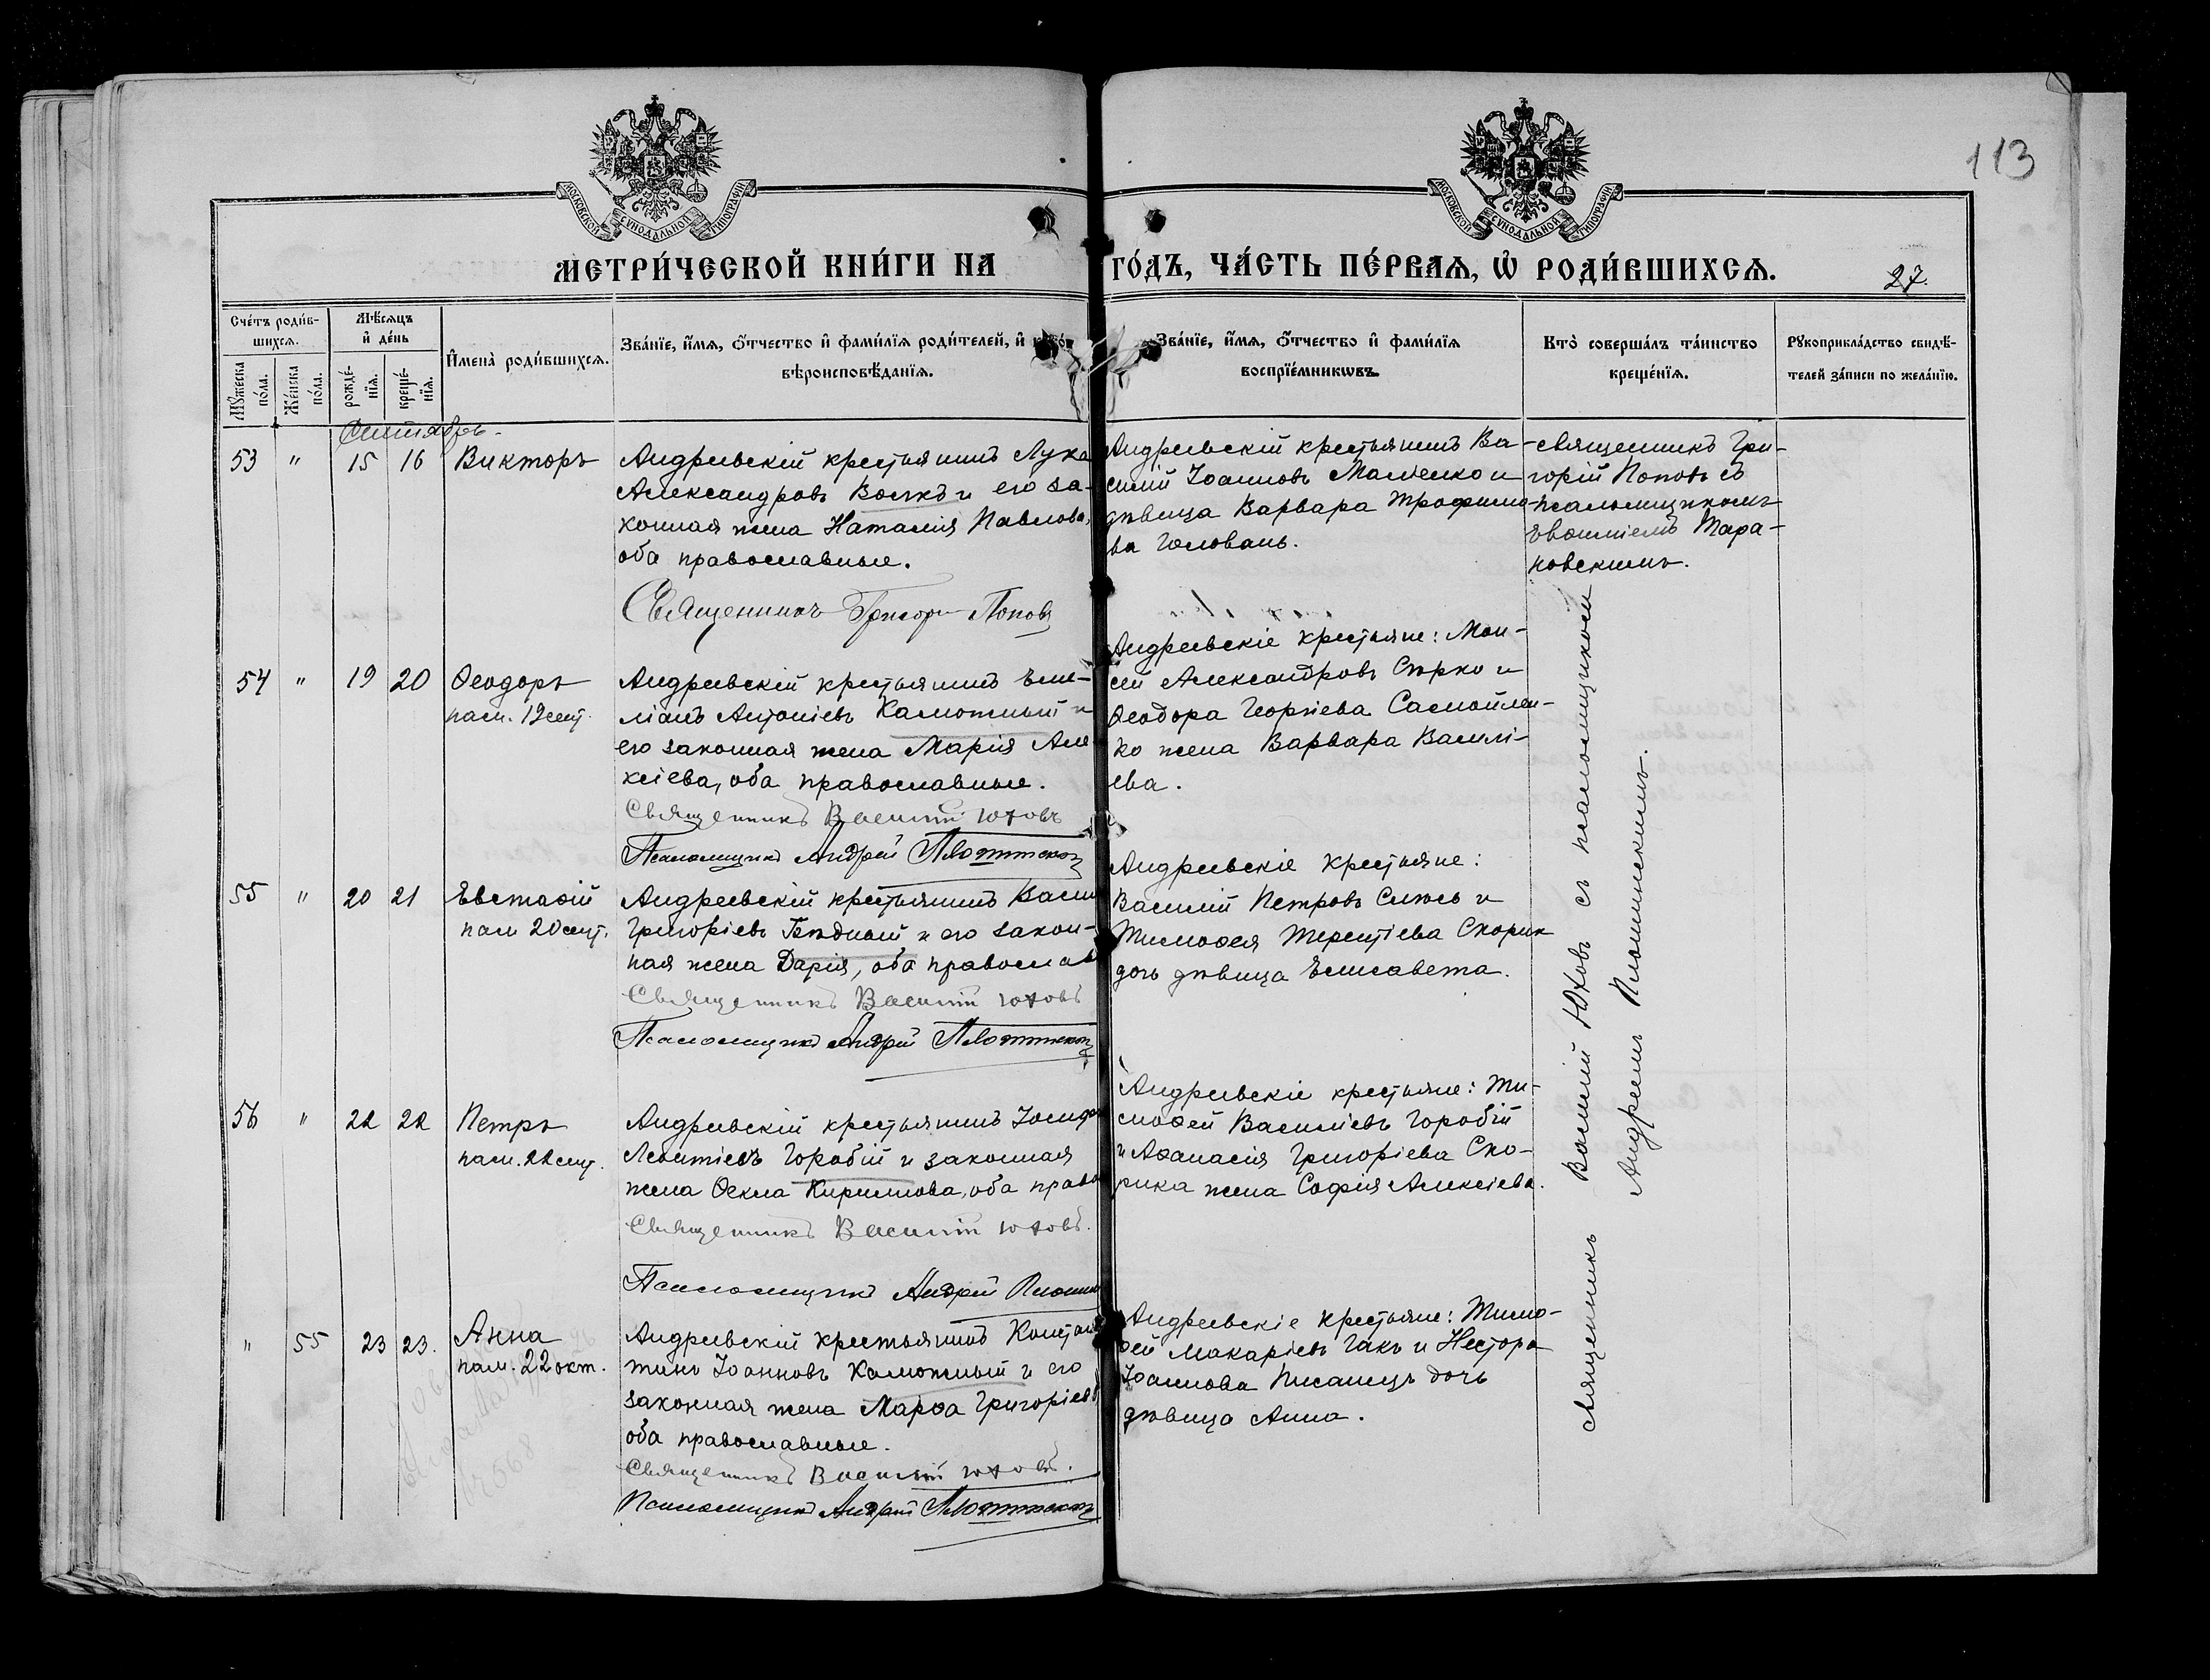 МОСКОВСКОЙ СУНОДАЛЬНОЙ ТИПОГРАФІИ
МОСКОВСКОЙ СУНОДАЛЬНОЙ ТИПОГРАФІИ
113
МЕТРИ́ЧЕСКОЙ КНИ́ГИ НА ГО́ДЪ, ЧА́СТЬ ПЕ́РВАѦ, Ѡ҆ РОДИ́ВШИХСѦ.
27.
Сче́тъ роди́в-
шихсѧ.
Мꙋ́жеска
по́ла.
Же́нска
по́ла.
Мѣ́сѧцъ
и҆ де́нь
рожде́-
нїѧ.
креще́-
нїѧ.
И҆мена̀ роди́вшихсѧ.
Зва́нїе, и҆́мѧ, ѻ҆́тчество и҆ фами́лїѧ роди́телей, и҆
вѣроисповѣ́данїѧ.
Зва́нїе, и҆́мѧ, ѻ҆́тчество и҆ фами́лїѧ
воспрїе́мникѡвъ.
Кто̀ соверша́лъ та́инство
креще́нїѧ.
Рꙋкоприкла́дство свидѣ́-
телей за́писи по жела́нїю.
Сентябрь.
53 " 15 16 Викторъ
Андреевскій крестьянинъ Лука
Александровъ Волкъ и его за-
конная жена Наталія Павлова,
оба православные.
Священникъ Григорій Поповъ
Андреевскій крестьянинъ Ва-
силій Іоанновъ Маленко и
дѣвица Варвара Трофимо-
ва Головань.
Священникъ Гри-
горій Поповъ съ
псаломщикомъ
Евгеніемъ Тара-
новскимъ.
54 " 19 20 Ѳеодоръ
пам. 19 сент.
Андреевскій крестьянинъ Еме-
ліанъ Антоніевъ Каложный и
его законная жена Марія Але-
ксіева, оба православные.
Священникъ Василій Юховъ
Псаломщикъ Андрей Плотинскій
Андреевскіе крестьяне: Мои-
сей Александровъ Сѣрко и
Ѳеодора Георгіева Самойлен-
ко жена Варвара Василі-
ева.
55 " 20 21 Евстаѳій
пам 20 сент.
Андреевскій крестьянинъ Васил
Григоріевъ Бѣдный и его закон-
ная жена Дарія, оба православ
Священникъ Василій Юховъ
Псаломщикъ Андрей Плотинскій
Андреевскіе крестьяне:
Василій Петровъ Силюсь и
Тимоѳея Терентіева Скорик
дочь дѣвица Елисавета.
56 " 22 22 Петръ
пам. 22 сент.
Андреевскій крестьянинъ Іосифъ
Леонтіевъ Горобій и законная
жена Ѳекла Кириллова, оба право
Священникъ Василій Юховъ.
Псаломщикъ Андрей Плотин
Андреевскіе крестьяне: Ти-
моѳей Василіевъ Горобій
и Аѳанасія Григоріева Ско-
рика жена Софія Алексіева.
" 55 23 23. Анна
пам. 22 окт.
Андреевскій крестьянинъ Констан
тинъ Іоанновъ Каложный и его
законная жена Марѳа Григоріева
оба православные.
Священникъ Василій Юховъ.
Псаломщикъ Андрей Плотинскій
Андреевскіе крестьяне: Тимо-
ѳей Макаріевъ Гакъ и Нестора
Іоаннова Писанецъ дочь
дѣвица Анна.
Священникъ Василій Юховъ съ псаломщикомъ
Андреемъ Плотинскимъ.